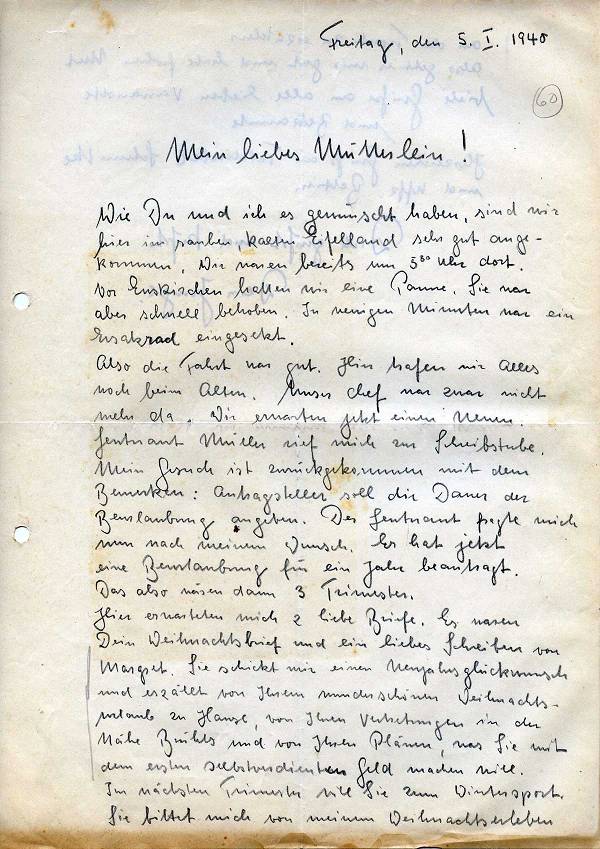 Freitag, den 5. I. 1940
60
Mein liebes Mütterlein!
Wie Du und ich es gewünscht haben, sind wir
hier im rauben, kalten Eifelland sehr gut ange-
kommen. Wir waren bereits um 5³⁰ Uhr dort.
Vor Euskirchen hatten wir eine Panne. Sie war
aber schnell behoben. In wenigen Minuten war ein
Ersatzrad eingesetzt.
Also die Fahrt war gut. Hier trafen wir Alles
noch beim Alten. Unser Chef war zwar nicht
mehr da. Wir erwarten jetzt einen Neuen.
Leutnant Müller rief mich zur Schreibstube.
Mein Gesuch ist zurückgekommen mit dem
Bemerken: Antragsteller soll die Dauer der
Beurlaubung angeben. Der Leutnant fragte mich
nun nach meinem Wunsch. Er hat jetzt
eine Beurlaubung für ein Jahr beantragt.
Das also wären dann 3 Trimester.
Hier erwarteten mich 2 liebe Briefe. Es waren
Dein Weihnachtsbrief und ein liebes Schreiben von
Margret. Sie schickt mir einen Neujahrsglückwunsch
und erzählt von Ihrem wunderschönen Weihnachts-
urlaub zu Hause, von Ihren Vertretungen in der
Nähe Bühls und von Ihren Plänen, was Sie mit
dem ersten selbstverdienten Geld machen will.
Im nächsten Trimester will Sie zum Wintersport.
Sie bittet mich von meinem Weihnachtserleben